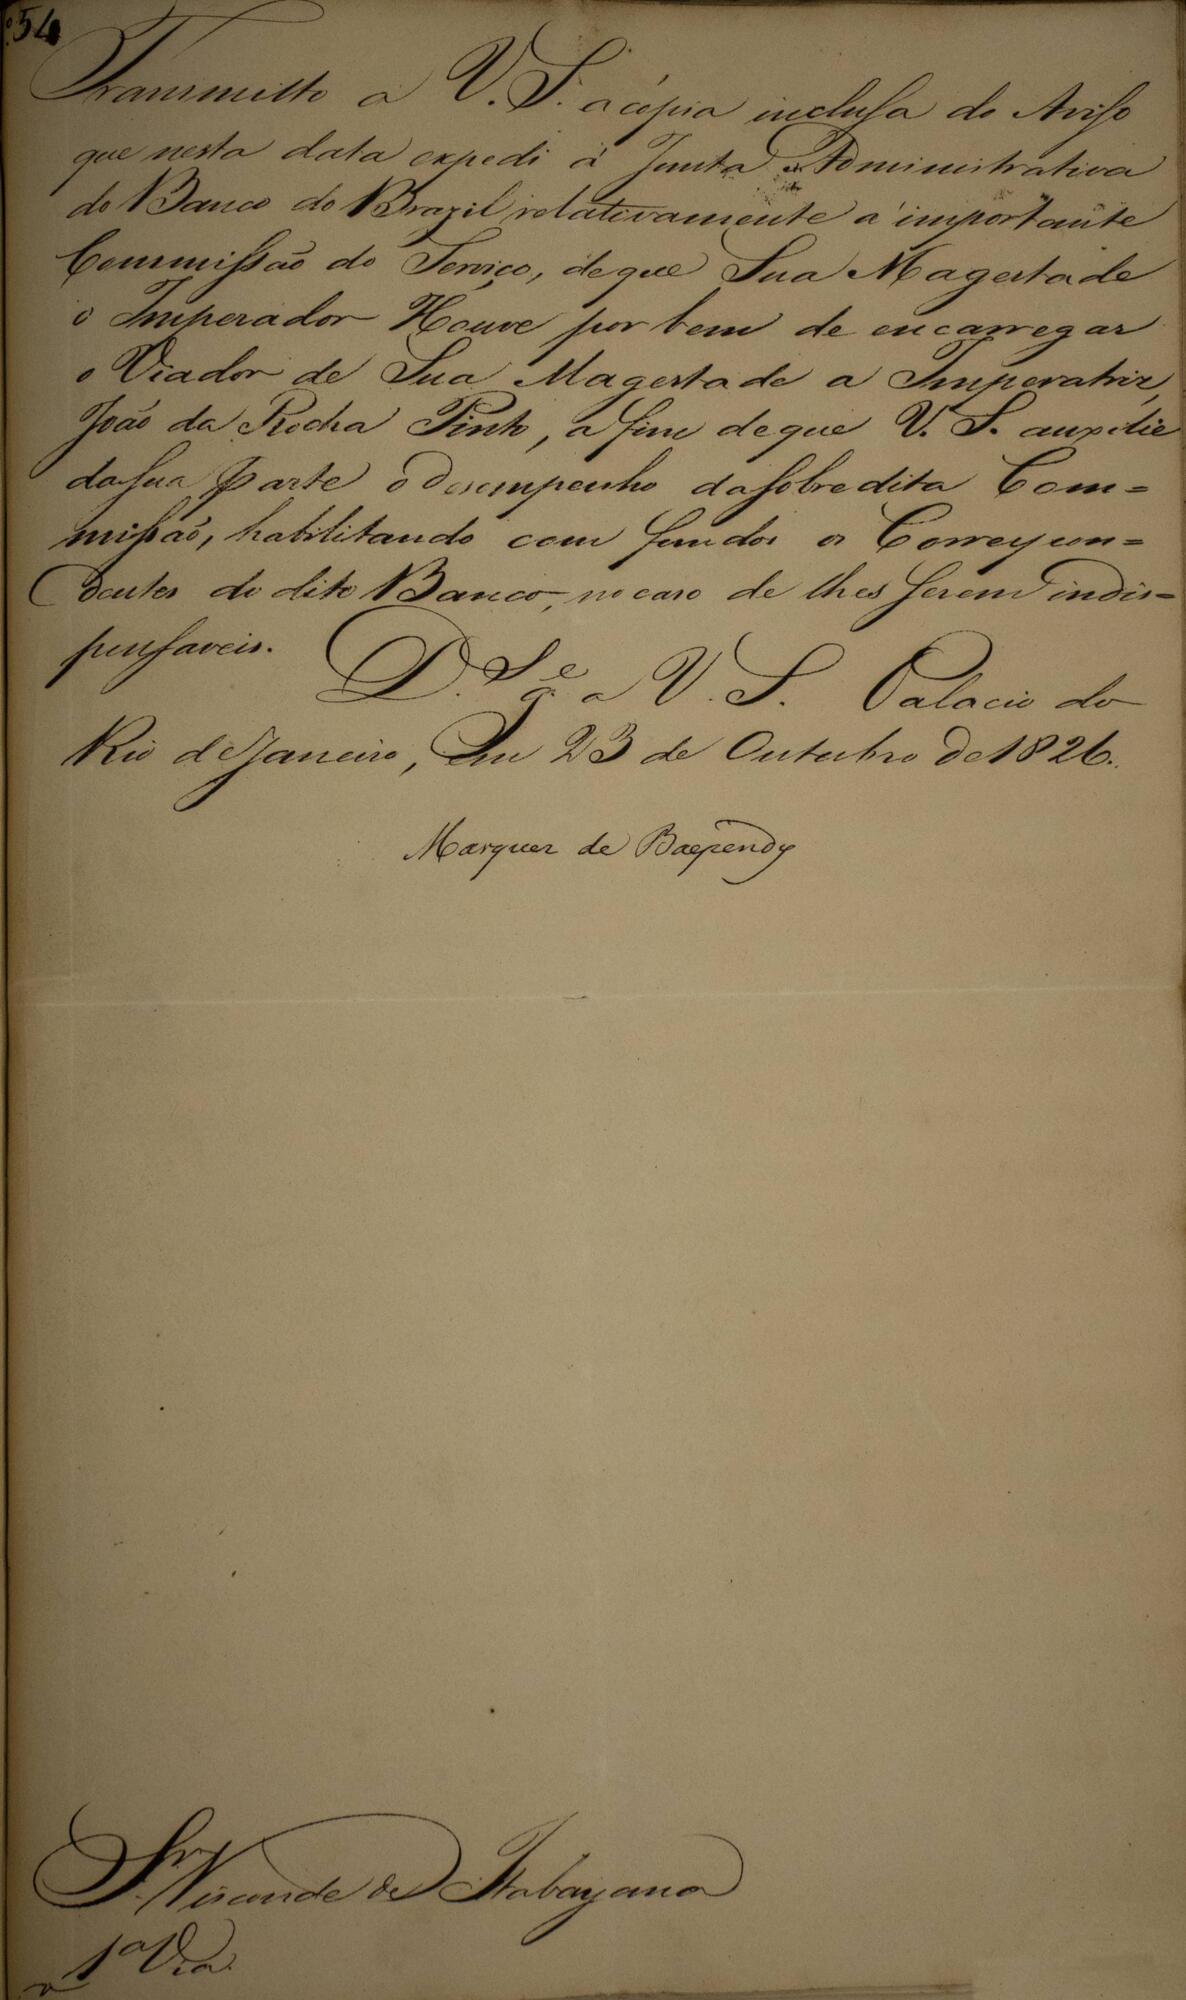 54
Transmitto a V. S. a cópia inclusa do Aviso
que nesta data expedi á Junta Administrativa
do Banco do Brazil relativamente á importante
Commissão do Serviço, de que Sua Magestade
o Imperador Houve por bem de encarregar
o Viador de Sua Magestade a Imperatriz,
João da Rocha Pinto, a fim de que V. S. auxilie
da sua parte o desempenho da sobredita Com=
missão, habilitando com fundos os Correspon=
dentes do dito Banco, no caso de lhes serem indis=
pensaveis.
D.s G.e a V. S. Palacio do
Rio de Janeiro, Em 23 de Outubro de 1826.
Marquez de Baependy
Snr. Visconde de Itabayana
1a Via.